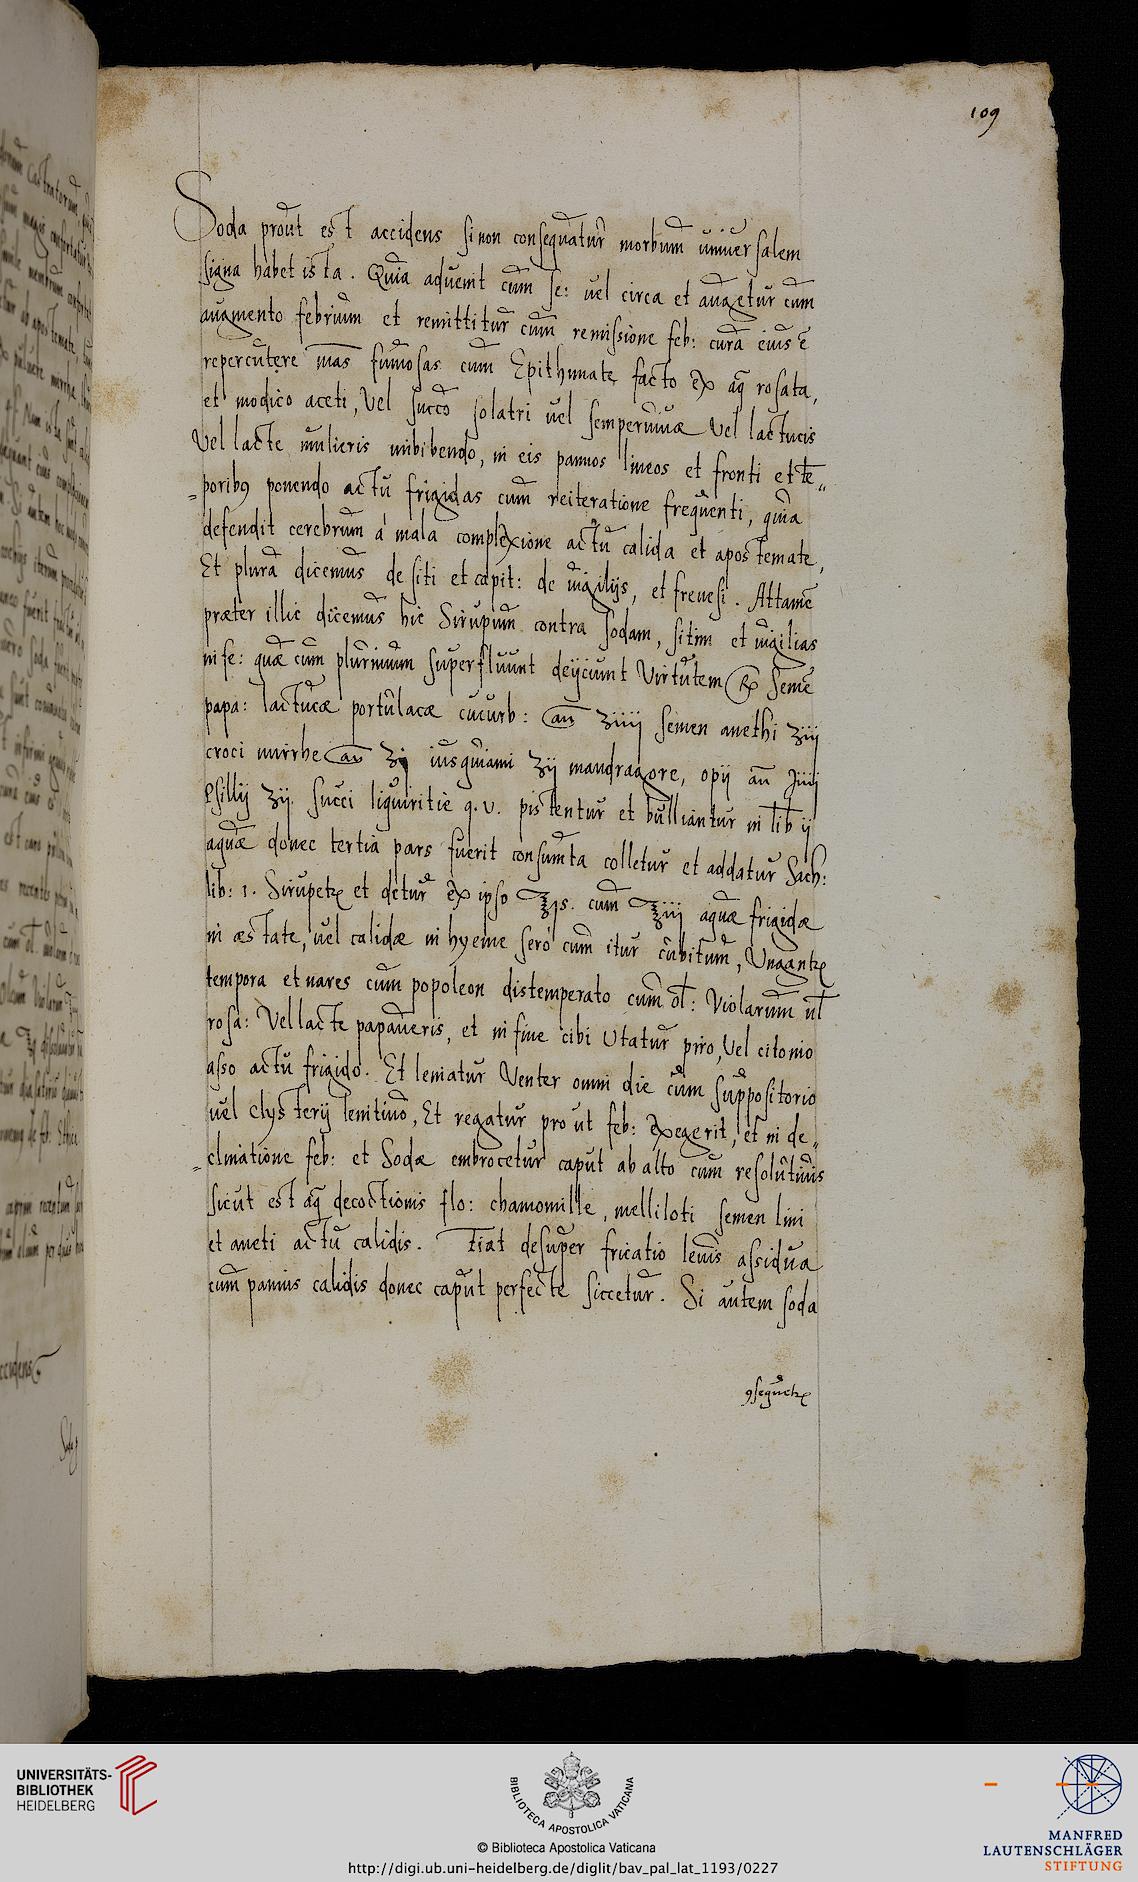 109
Soda prout est accidens si non consequatur morbum universalem
signa habet ista. Quia advenit cum fe: vel circa et augetur cum
augmento febrium et remittitur cum remissione feb: cura eius ē
repercutere mās fumosas cum Epithimate facto ex aq̄ rosata,
et modico aceti, Vel succo solatri vel semperuiuæ Vel lactucis
Vel lacte mulieris imbibendo, in eis pannos lineos et fronti et tē„
„poribꝯ ponendo actu frigidas cum reiteratione frequenti, quia
defendit cerebrum á mala complexione actu calida et apostemate,
Et plura dicemus de siti et capit: de uigilijs, et frenesi. Attamē
præter illic dicemus hic Sirupum contra sodam, sitim et uigilias
in fe: quæ cum plurimum superfluunt deijciunt Virtutem ℞ Semē
papa: lactucæ portulacæ cucurb: añ ʒiiij semen anethi ʒiij
croci mirrhe añ ʒj iusquiami ʒij mandragore, opij añ
Psillij ʒij. succi liquiritie q. v. pistentur et bulliantur in lib ij
aquæ donec tertia pars fuerit consumta colletur et addatur Sach:
lib: 1. Sirupetꝝ et detur ex ipso ℥js. cum ℥iij aquæ frigidæ
in æstate, uel calidæ in hyeme seró cum itur cubitum, Ungantꝝ
tempora et nares cum popoleon distemperato cum ol: Violarum ul
rosa: Vel lacte papaueris, et in fine cibi Utatur piro, Vel citonio
asso actu frigido. Et leniatur Venter omni die cum suppositorio
uel clysterij lenitiuo, Et regatur pro ut feb: exegerit, et in de„
„clinatione feb: et Sodæ embrocetur caput ab alto cum resolutiuis
sicut est aq̄ decoctionis flo: chamomille, melliloti semen lini
et aneti actu calidis. Fiat desuper fricatio leuis assidua
cum pannis calidis donec caput perfecte siccetur. Si autem soda
ꝯsequetꝝ
UNIVERSITÄTS-
BIBLIOTHEK
HEIDELBERG
BIBLIOTECA APOSTOLICA VATICANA
© Biblioteca Apostolica Vaticana
http://digi.ub.uni-heidelberg.de/diglit/bav_pal_lat_1193/0227
MANFRED
LAUTENSCHLÄGER
STIFTUNG